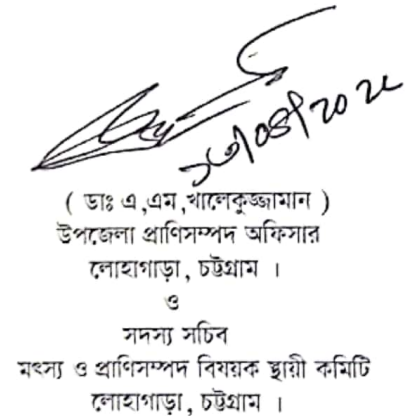 ( ডাঃ এ,এম,খালেকুজ্জামান )
উপজেলা প্রাণিসম্পদ অফিসার
লোহাগাড়া, চট্টগ্রাম ।
ও
সদস্য সচিব
মৎস্য ও প্রাণিসম্পদ বিষয়ক স্থায়ী কমিটি
লোহাগাড়া, চট্টগ্রাম ।